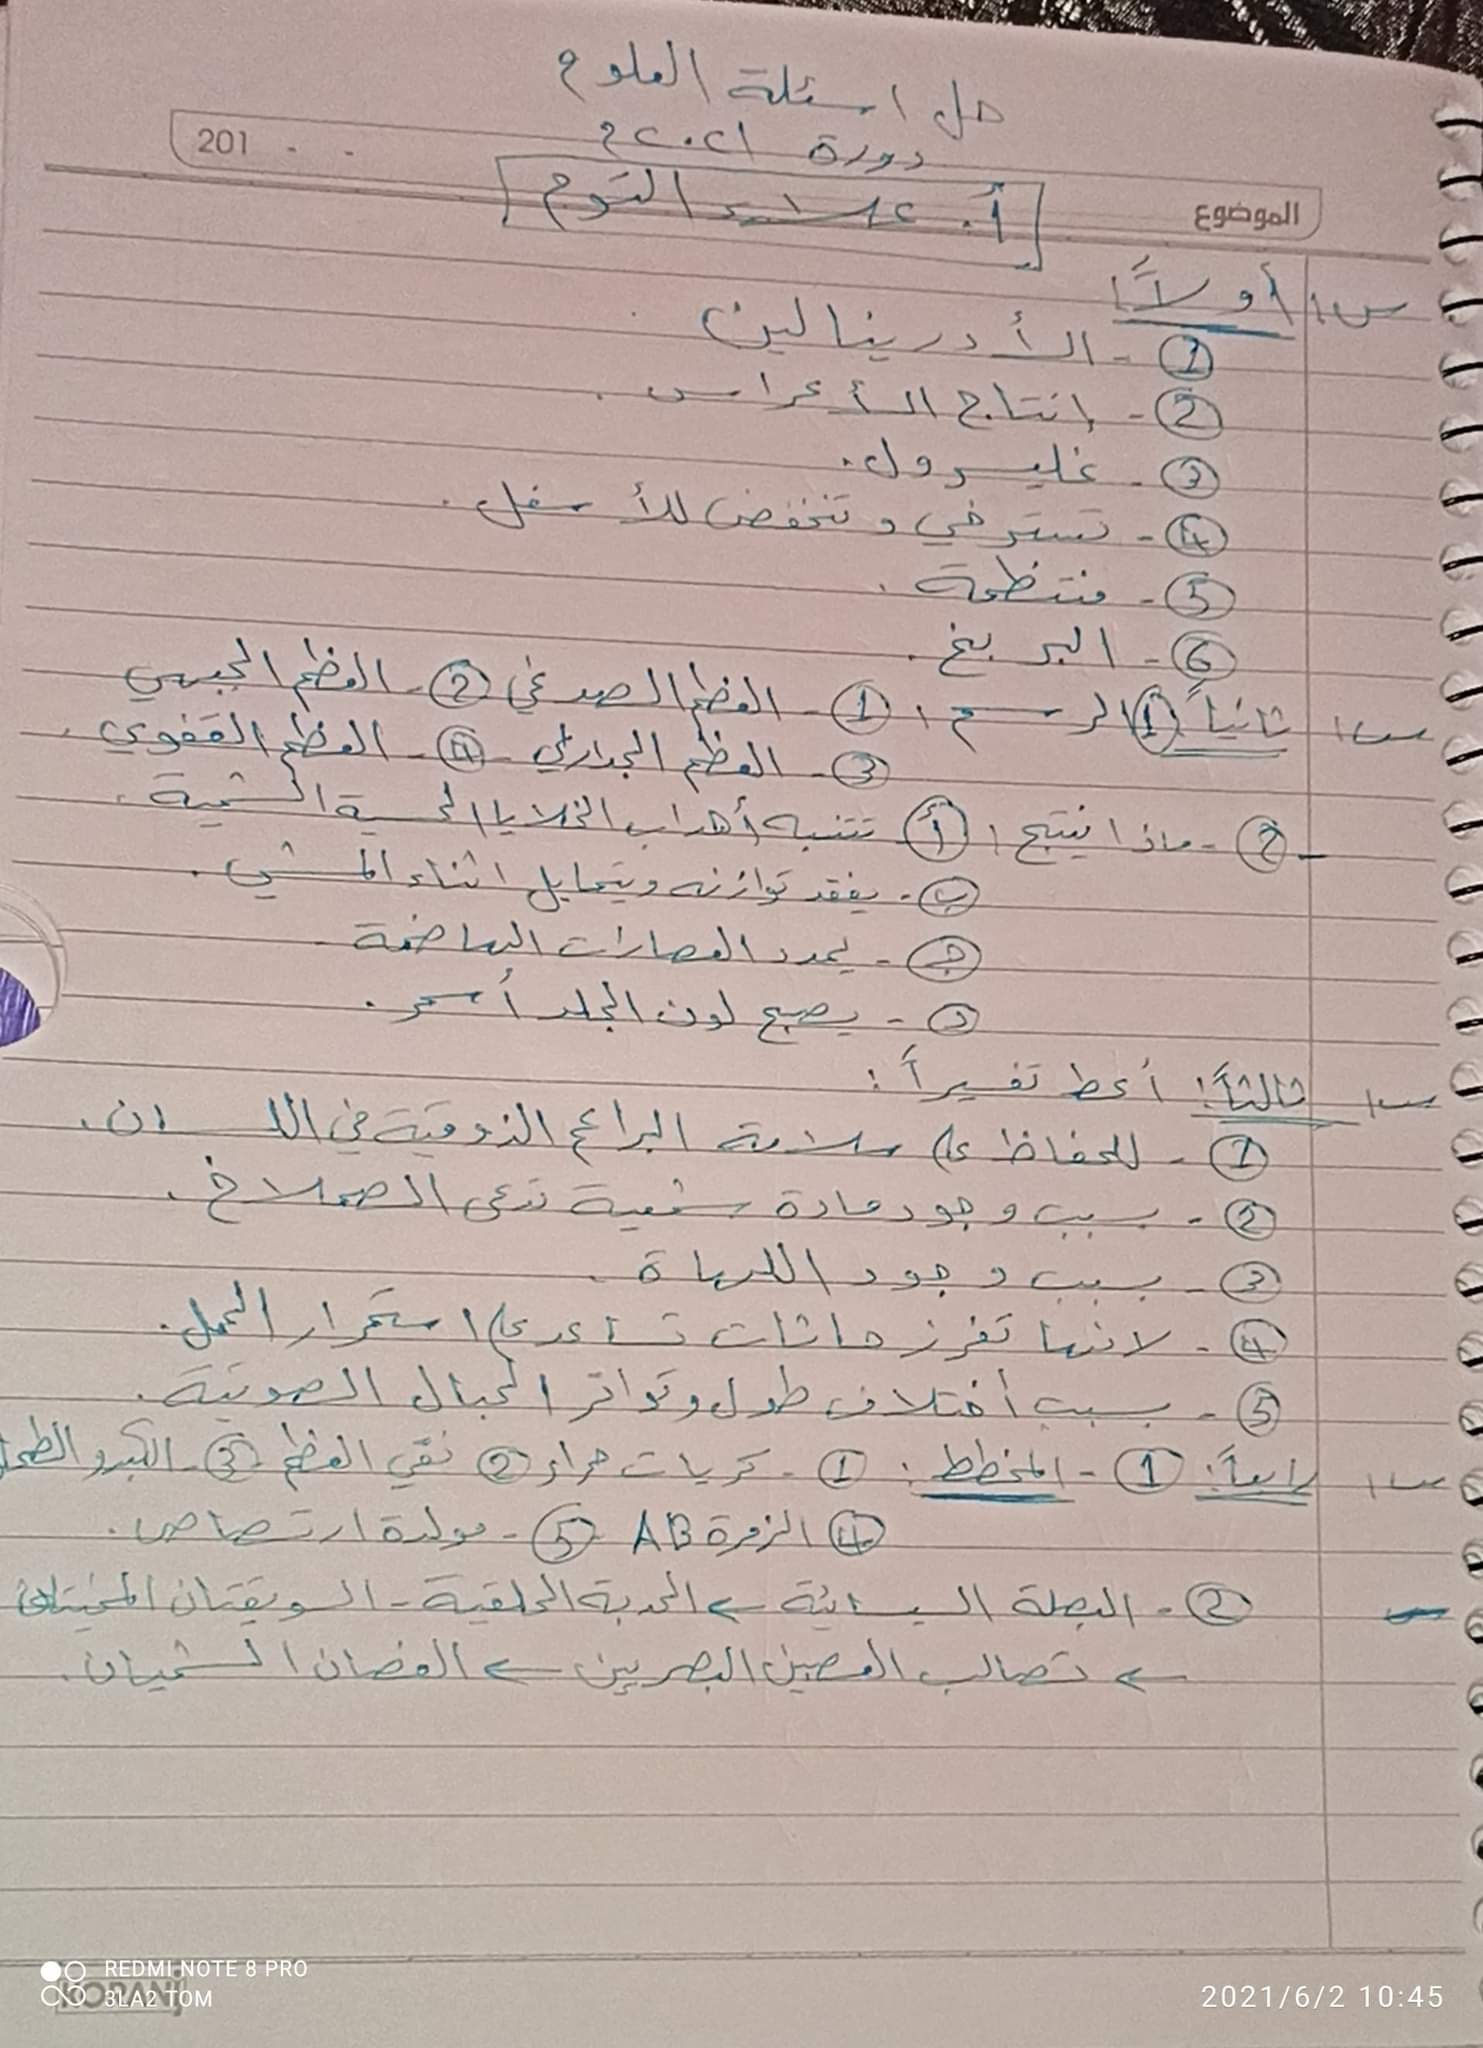 حل اسئلة العلوم
دورة ٢٠٢١ م
201
الموضوع
أ. علاء التوم
س١ أولاً
① - الأدرينالين
② - إنتاج الأعراس.
③ - غليسرول.
④ - تسترخي وتنخفض للأسفل.
⑤ - منتظمة.
⑥ - البربخ.
س١ ثانياً ① الرسم: ① - العظم الصدغي ② - العظم الجبهي
③ - العظم الجداري ④ - العظم القفوي.
② - ماذا ينتج: أ تتنبه أهداب الخلايا الحسية الشمية.
ب - يفقد توازنه ويتمايل اثناء المشي.
جـ - يمدد العصارات الهاضمة
د - يصبح لون الجلد أسمر.
س١ ثالثاً: أعط تفسيراً:
① - للحفاظ على سلامة البراعم الذوقية في اللسان.
② - بسبب وجود مادة شمعية تدعى الصملاخ.
③ - بسبب وجود اللهاة.
④ - لانها تفرز حاثات تساعد على استمرار الحمل.
⑤ - بسبب أختلاف طول وتواتر الحبال الصوتية.
س١ رابعاً: ① - المخطط: ① - كريات حمراء ② نقي العظم ③ - الكبد والطحال
④ الزمرة AB ⑤ - مولدة ارتصاص.
② - البصلة السيسائية ← الحدبة الحلقية - السويقتان المخيتان
← تصالب العصبين البصريين ← الفصان الشميان.
REDMI NOTE 8 PRO
3LA2 TOM
KORANJ
2021/6/2 10:45